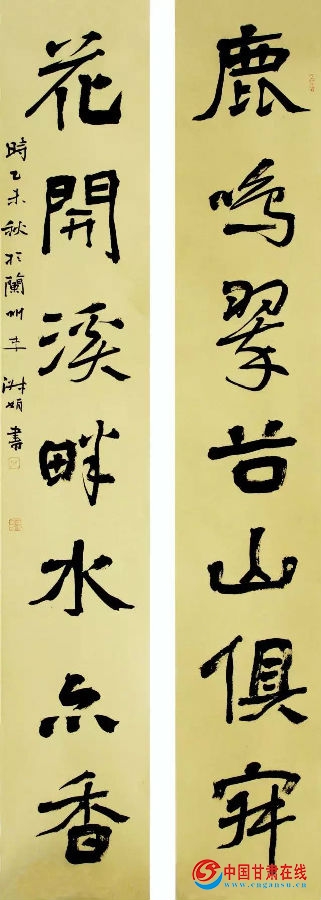 鹿鳴翠谷山俱寂
花開溪畔水亦香
時乙未秋於蘭州李
書
中国甘肃在线
www.cngansu.cn